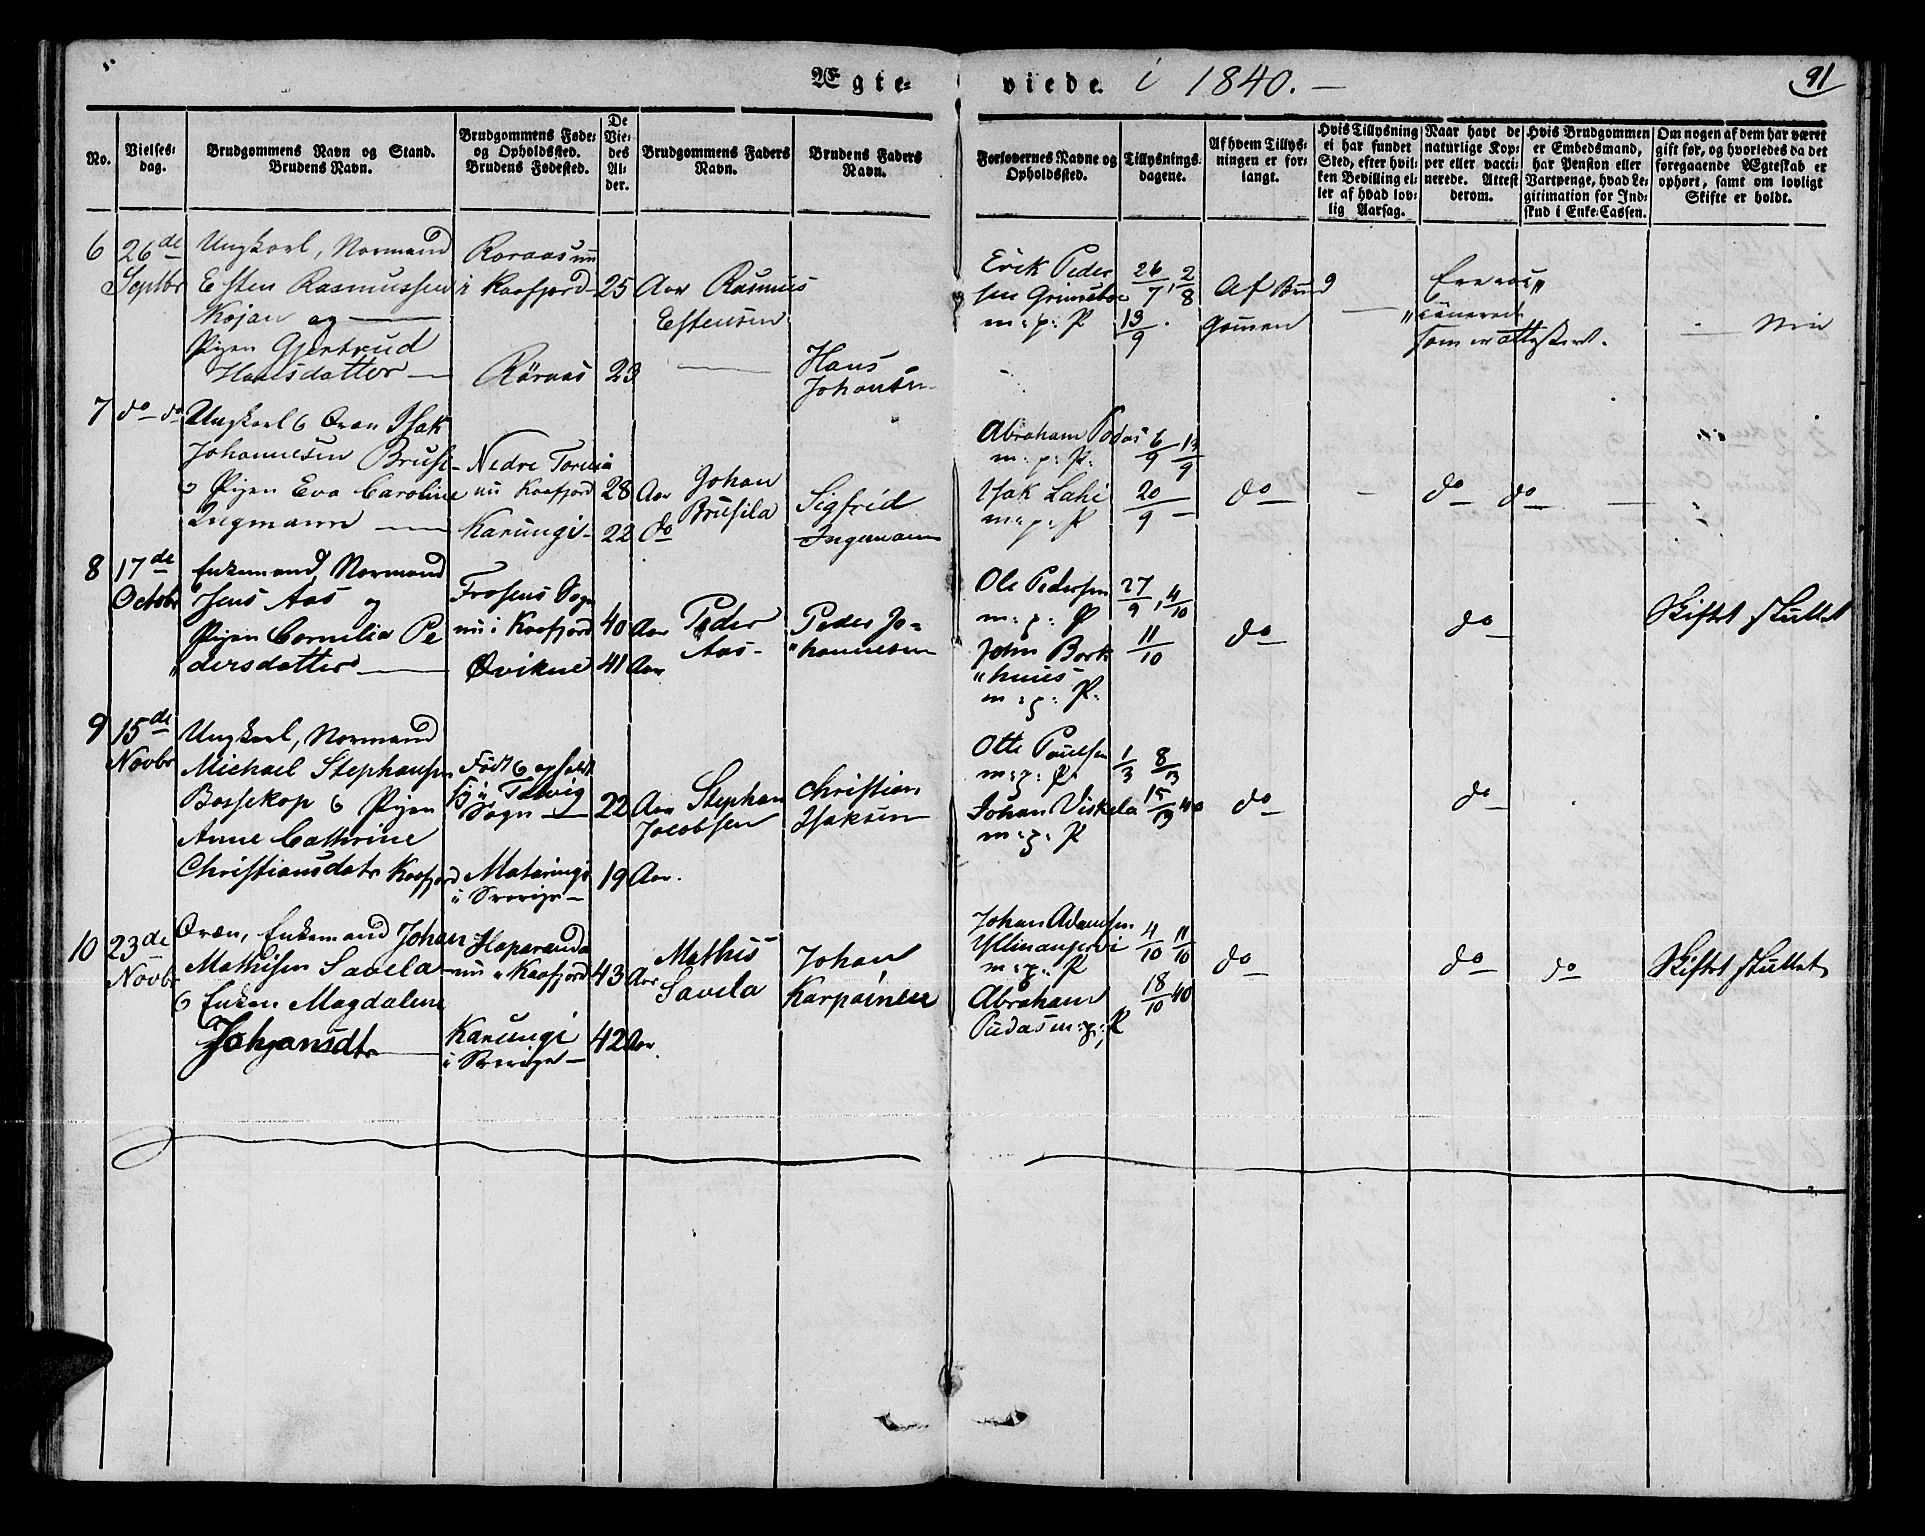 Ægte-
viede. i 1840. —
91
No.
Vielses-
dag.
Brudgommens Navn og Stand.
Brudens Navn.
Brudgommens Føde-
og Opholdssted.
Brudens Fødested.
De
Vie-
des
Al-
der.
Brudgommens Faders
Navn.
Brudens Faders
Navn.
Forlovernes Navne og
Opholdssted.
Tillysnings-
dagene.
Af hvem Tillys-
ningen er for-
langt.
Hvis Tillysning
ei har fundet
Sted, efter hvil-
ken Bevilling el-
ler af hvad lov-
lig Aarsag.
Naar havt de
naturlige Kop-
per eller vacci-
nerede. Attest
derom.
Hvis Brudgommen
er Embedsmand,
har Pension eller
Vartpenge, hvad Le-
gitimation for Ind-
skud i Enke-Cassen.
Om nogen af dem har været
gift før, og hvorledes da det
foregaaende Ægteskab er
ophørt, samt om lovligt
Skifte er holdt.
6
26de
Septbr
Ungkarl, Normand
Esten Rasmussen
Kojan og —
Pigen Gjertrud
Hansdatter —
Roraas nu
i Kaafjord
Röraas
25 Aar
23
Rasmus
Estensen
Hans
Johansen
Erik Peder
sen Grimsboe
m: p: P.
26/7, 2/8
13/9.
Af Brud
gomen
Ere vac
"cinered
som er attesteret.
7
do do
Ungkarl & Qvæn Isak
Johannesen Brusi-
& Pigen Eva Caroline
Ingmann —
Nedre Tornea
nu Kaafjord
Karungi
28 Aar
22 do
Johan
Brusila
Sigfrid
Ingemann
Abraham Pudas
m: p: P.
Isak Lahi
m: p: P
6/9 13/9
20/9
do
do
do
8
17de
Octobr
Enkemand, Normand
Jens Aas og
Pigen Cornelia Pe
"dersdatter —
Frosens Sogn
nu i Kaafjord
Qvikne
40 Aar
41 Aar
Peder
Aas
Peder Jo-
"hannesen
Ole Pedersen
m: p: P
John Bork
"huus
m: p: P.
27/9, 4/10
11/10
do
do
Skiftet sluttet
9
15de
Novbr
Ungkarl, Normand
Michael Stephansen
Bossekop & Pigen
Anne Cathrine
Christiansdatr Kaafjord
Talvig
Sogn —
Mataringi
i Sverige —
22 Aar
19 Aar.
Stephan
Jacobsen
Christian
Isaksen
Otte Paulsen
m: p: P.
Johan Viskela
m: p: P
do
do
10
23de
Novbr
Qvæn, Enkemand Johan
Mathisen Savela
& Enken Magdalene
Johansdtr —
Haparanda
nu i Kaafjord
Karungi
i Sverige —
43 Aar
42 Aar.
Mathis
Savela
Johan
Karpainen
Johan Adamsen
m: p: P
Abraham
Pudas m: p: P
4/10 11/10
18/10 40
do
do
do
Skiftet sluttet